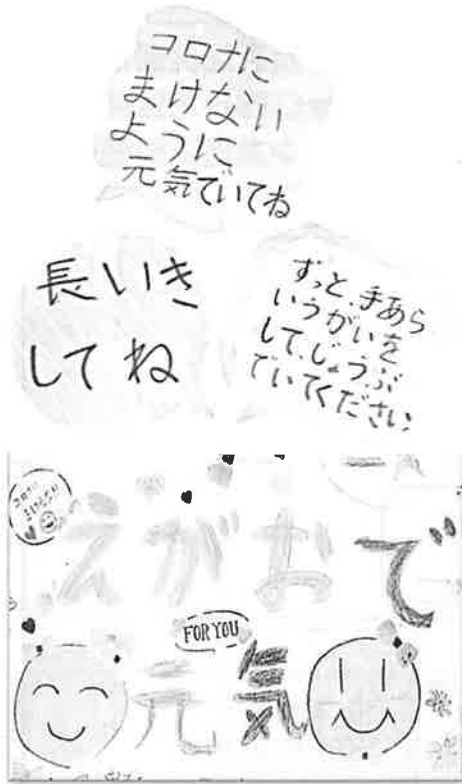 コロナに
まけない
ように
元気でいてね
長いき
してね
ずっと、手あら
いうがいを
して、じょうぶ
でいてください
コロナに
まけないで
えがおで
FOR YOU
元気